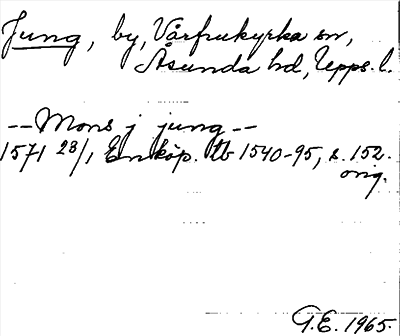 Jung, by, Vårfrukyrka sn,
Åsunda hd, Upps. l.
--Mons j jung--
1571 23/1 Enköp. tb 1540-95, s. 152.
orig.
G.E. 1965.